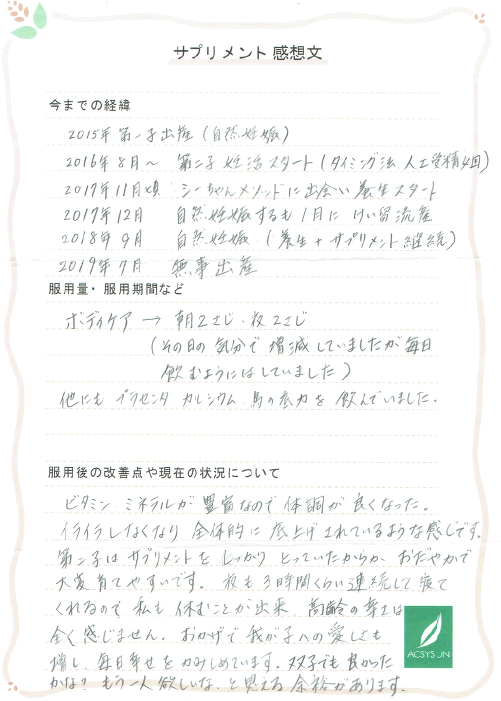 サプリメント 感想文
今までの経緯
2015年 第一子出産 (自然妊娠)
2016年8月~ 第二子 妊活スタート (タイミング法、人工受精4回)
2017年11月頃 シーちゃんメソッドに出会い養生スタート
2017年12月 自然妊娠するも1月に けい留流産
2018年9月 自然妊娠 (養生+サプリメント継続)
2019年7月 無事出産
服用量・服用期間など
ボディケア → 朝2さじ・夜2さじ
(その日の気分で増減していましたが毎日
飲むようにはしていました)
他にも プラセンタ カルシウム 馬の底力を 飲んでいました。
服用後の改善点や現在の状況について
ビタミン、ミネラルが豊富なので体調が良くなった。
イライラしなくなり 全体的に底上げされているような感じです。
第二子はサプリメントをしっかりとっていたからか、おだやかで
大変育てやすいです。夜も3時間くらい連続して寝て
くれるので私も休むことが出来、高齢の辛さは
全く感じません。おかげで我が子への愛しさも
増し、毎日幸せをかみしめています。双子でも良かった
かな?もう一人欲しいな、と思える余裕があります。
ACSYS JN